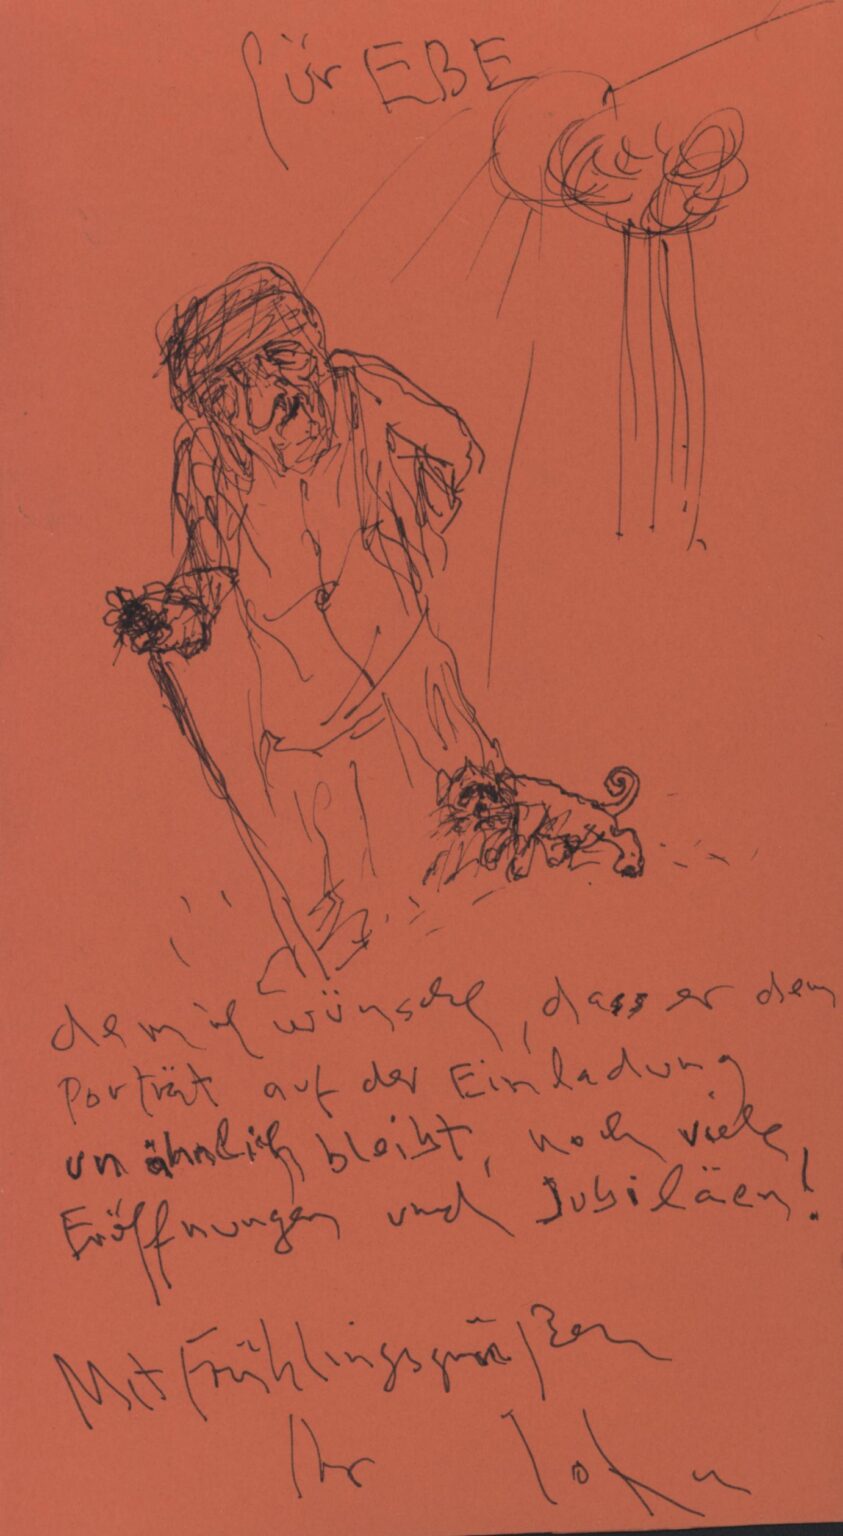 für EBE
dem ich wünsche, dass er dem
Porträt auf der Einladung
unähnlich bleibt, noch viele
Eröffnungen und Jubiläen!
Mit Frühlingsgrüßen
Ihr